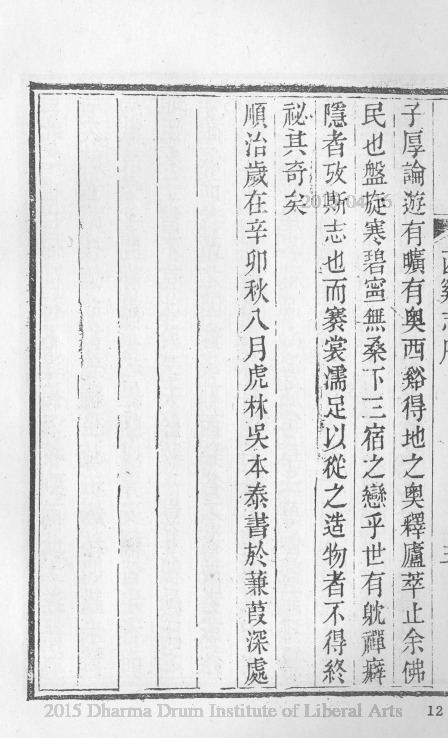 子厚論遊有曠有奧西谿得地之奧釋廬萃止余佛
民也盤旋寒碧寧無桑下三宿之戀乎世有躭禪癖
隱者攷斯志也而褰裳濡足以從之造物者不得終
祕其奇矣
順治歲在辛卯秋八月虎林吳本泰書於蒹葭深處
2015 Dharma Drum Institute of Liberal Arts
12